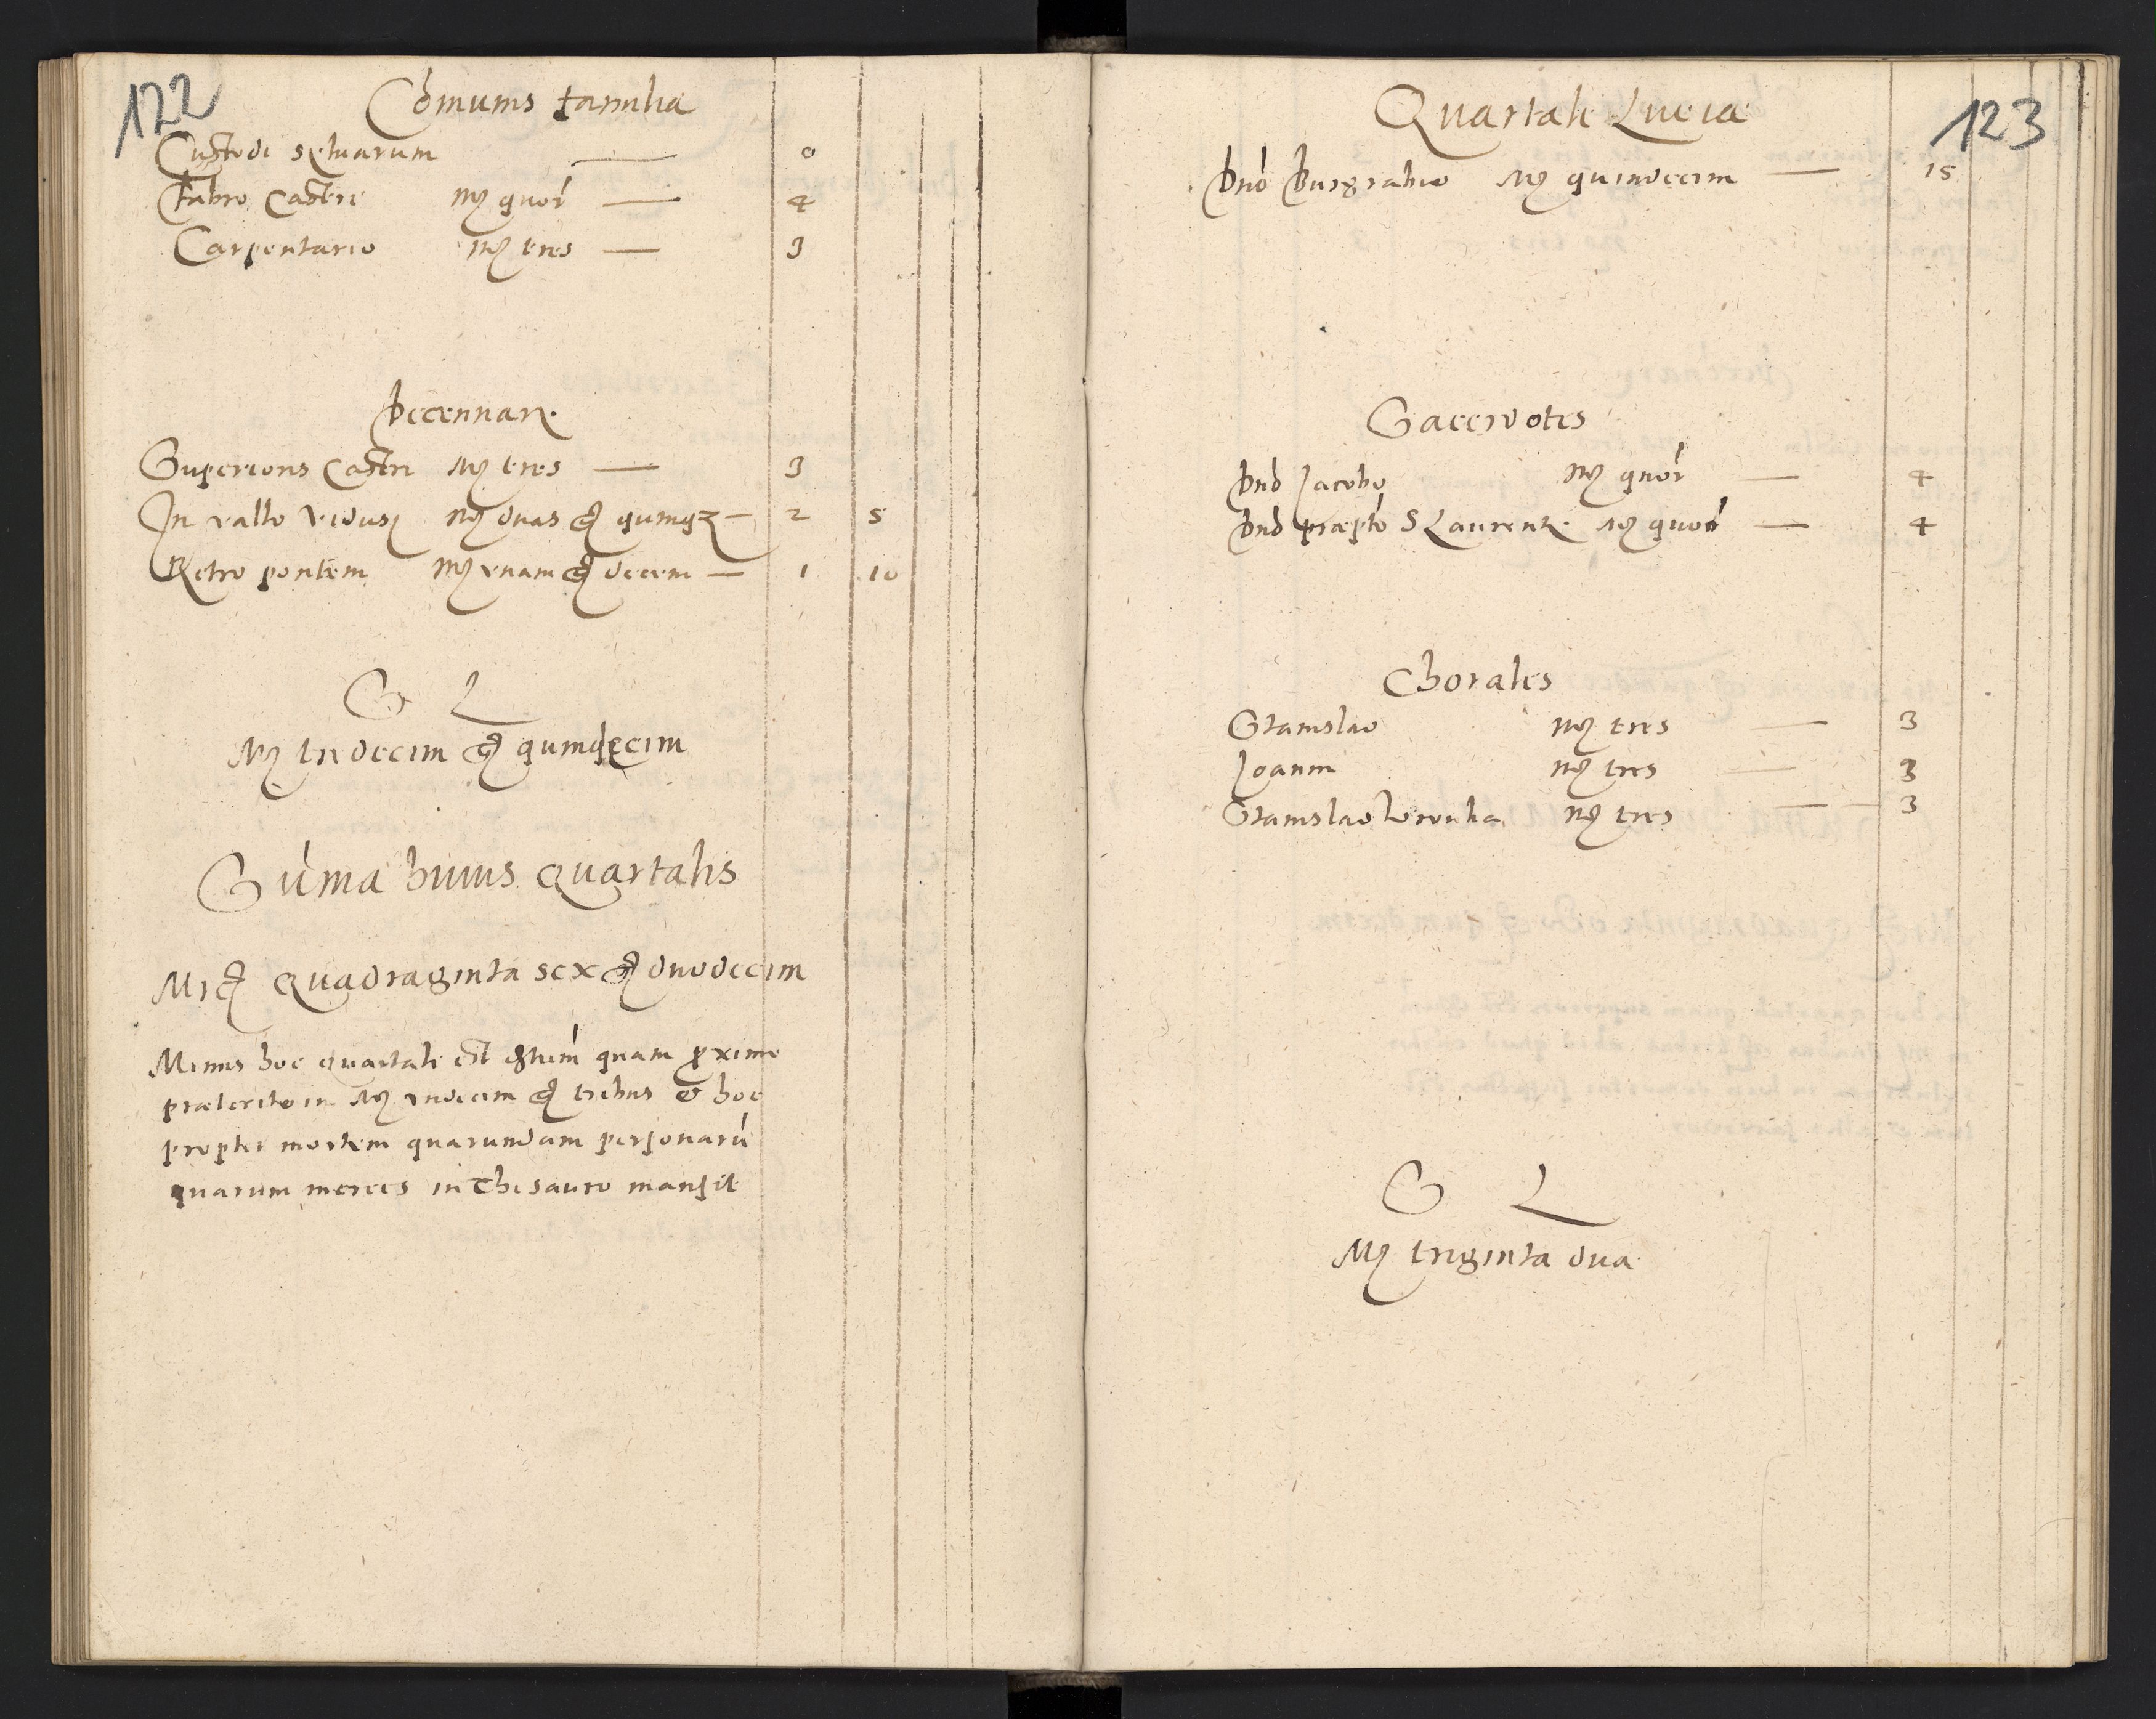 122
Comunis familia
Custodi seluarum — 0
Fabro Castri Mͬ quor — 4
Carpentario Mͬ tres — 3
Decennarij
Superioris Castri Mͬ tres — 3
In vallo Mͬ duas gͬ quinqȝ — 2 5
Retro pontem Mͬ vnam gͬ decem — 1 10
S L
Mͬ tredecim gͬ quindecim
Suma huius quartalis
Mͬ gͬ Quadraginta sex gͬ duodecim
Minus hoc quartali est quam proxime
præterito in Mͬ vndecim gͬ tribus & hoc
propter mortem quarundam personarū
quarum merces in thesauro mansit
123
Quartale Luciæ
Dno Burgrabio Mͬ quindecim — 15
Sacerdotes
Dno Jacobo Mͬ quor — 4
Dno præpto S Laurentij Mͬ quor — 4
Chorales
Stanislao Mͬ tres — 3
Joanni Mͬ tres — 3
Stanislao Mͬ tres — 3
S L
Mͬ triginta dua